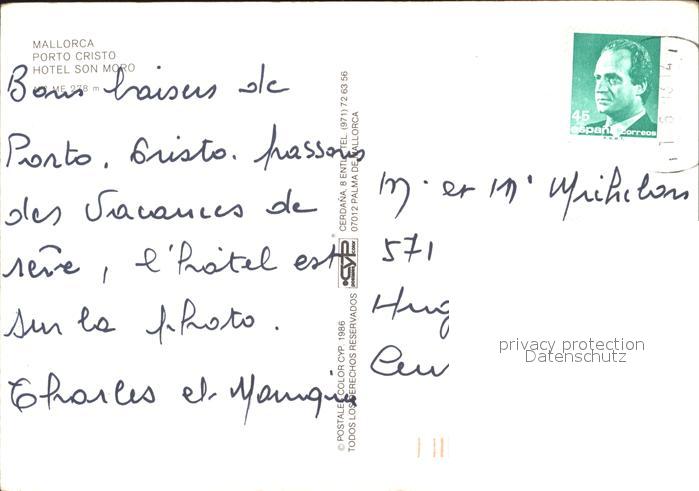 MALLORCA
PORTO CRISTO
HOTEL SON MORO
278
Bons baisers de
Porto. Cristo. passons
des Vacances de
rêve, l'hôtel est
sur la photo.
Charles et
© POSTALES COLOR CYP. 1986
TODOS LOS DERECHOS RESERVADOS
CYP
CERDAÑA, 8 ENTLO. TEL. (971) 72 63 56
07012 PALMA DE MALLORCA
45
españa correos
M. et Me Michelon
571
Hug
privacy protection
Datenschutz